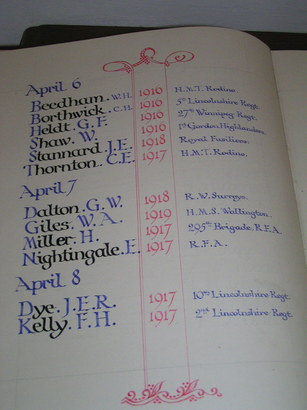 April 6
Beedham. W.H. 1916 H.M.T. Rodino.
Borthwick. C.H. 1916 5th Lincolnshire Regt.
Heldt. G.F. 1916 27th Winnipeg Regt.
Shaw. W. 1916 1st Gordon Highlanders.
Stannard. J.E. 1918 Royal Fusiliers.
Thornton. C.E. 1917 H.M.T. Rodino.
April 7
Dalton. G.W. 1918 R.W. Surreys.
Giles. W.A. 1919 H.M.S. Wellington.
Miller. H. 1917 295th Brigade, R.F.A.
Nightingale. E. 1917 R.F.A.
April 8
Dye. J.E.R. 1917 10th Lincolnshire Regt.
Kelly. F.H. 1917 2nd Lincolnshire Regt.